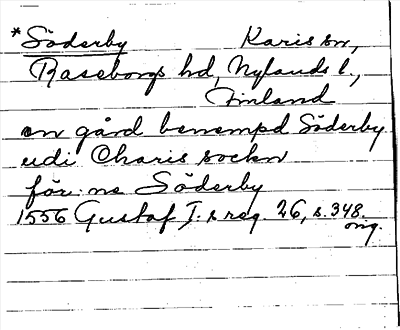 *Söderby Karis sn,
Raseborgs hd, Nylands l.,
Finland
en gård benempd Söderby
udi Charis sockn
för: ne Söderby
1556 Gustaf I:s reg. 26, s. 348.
orig.